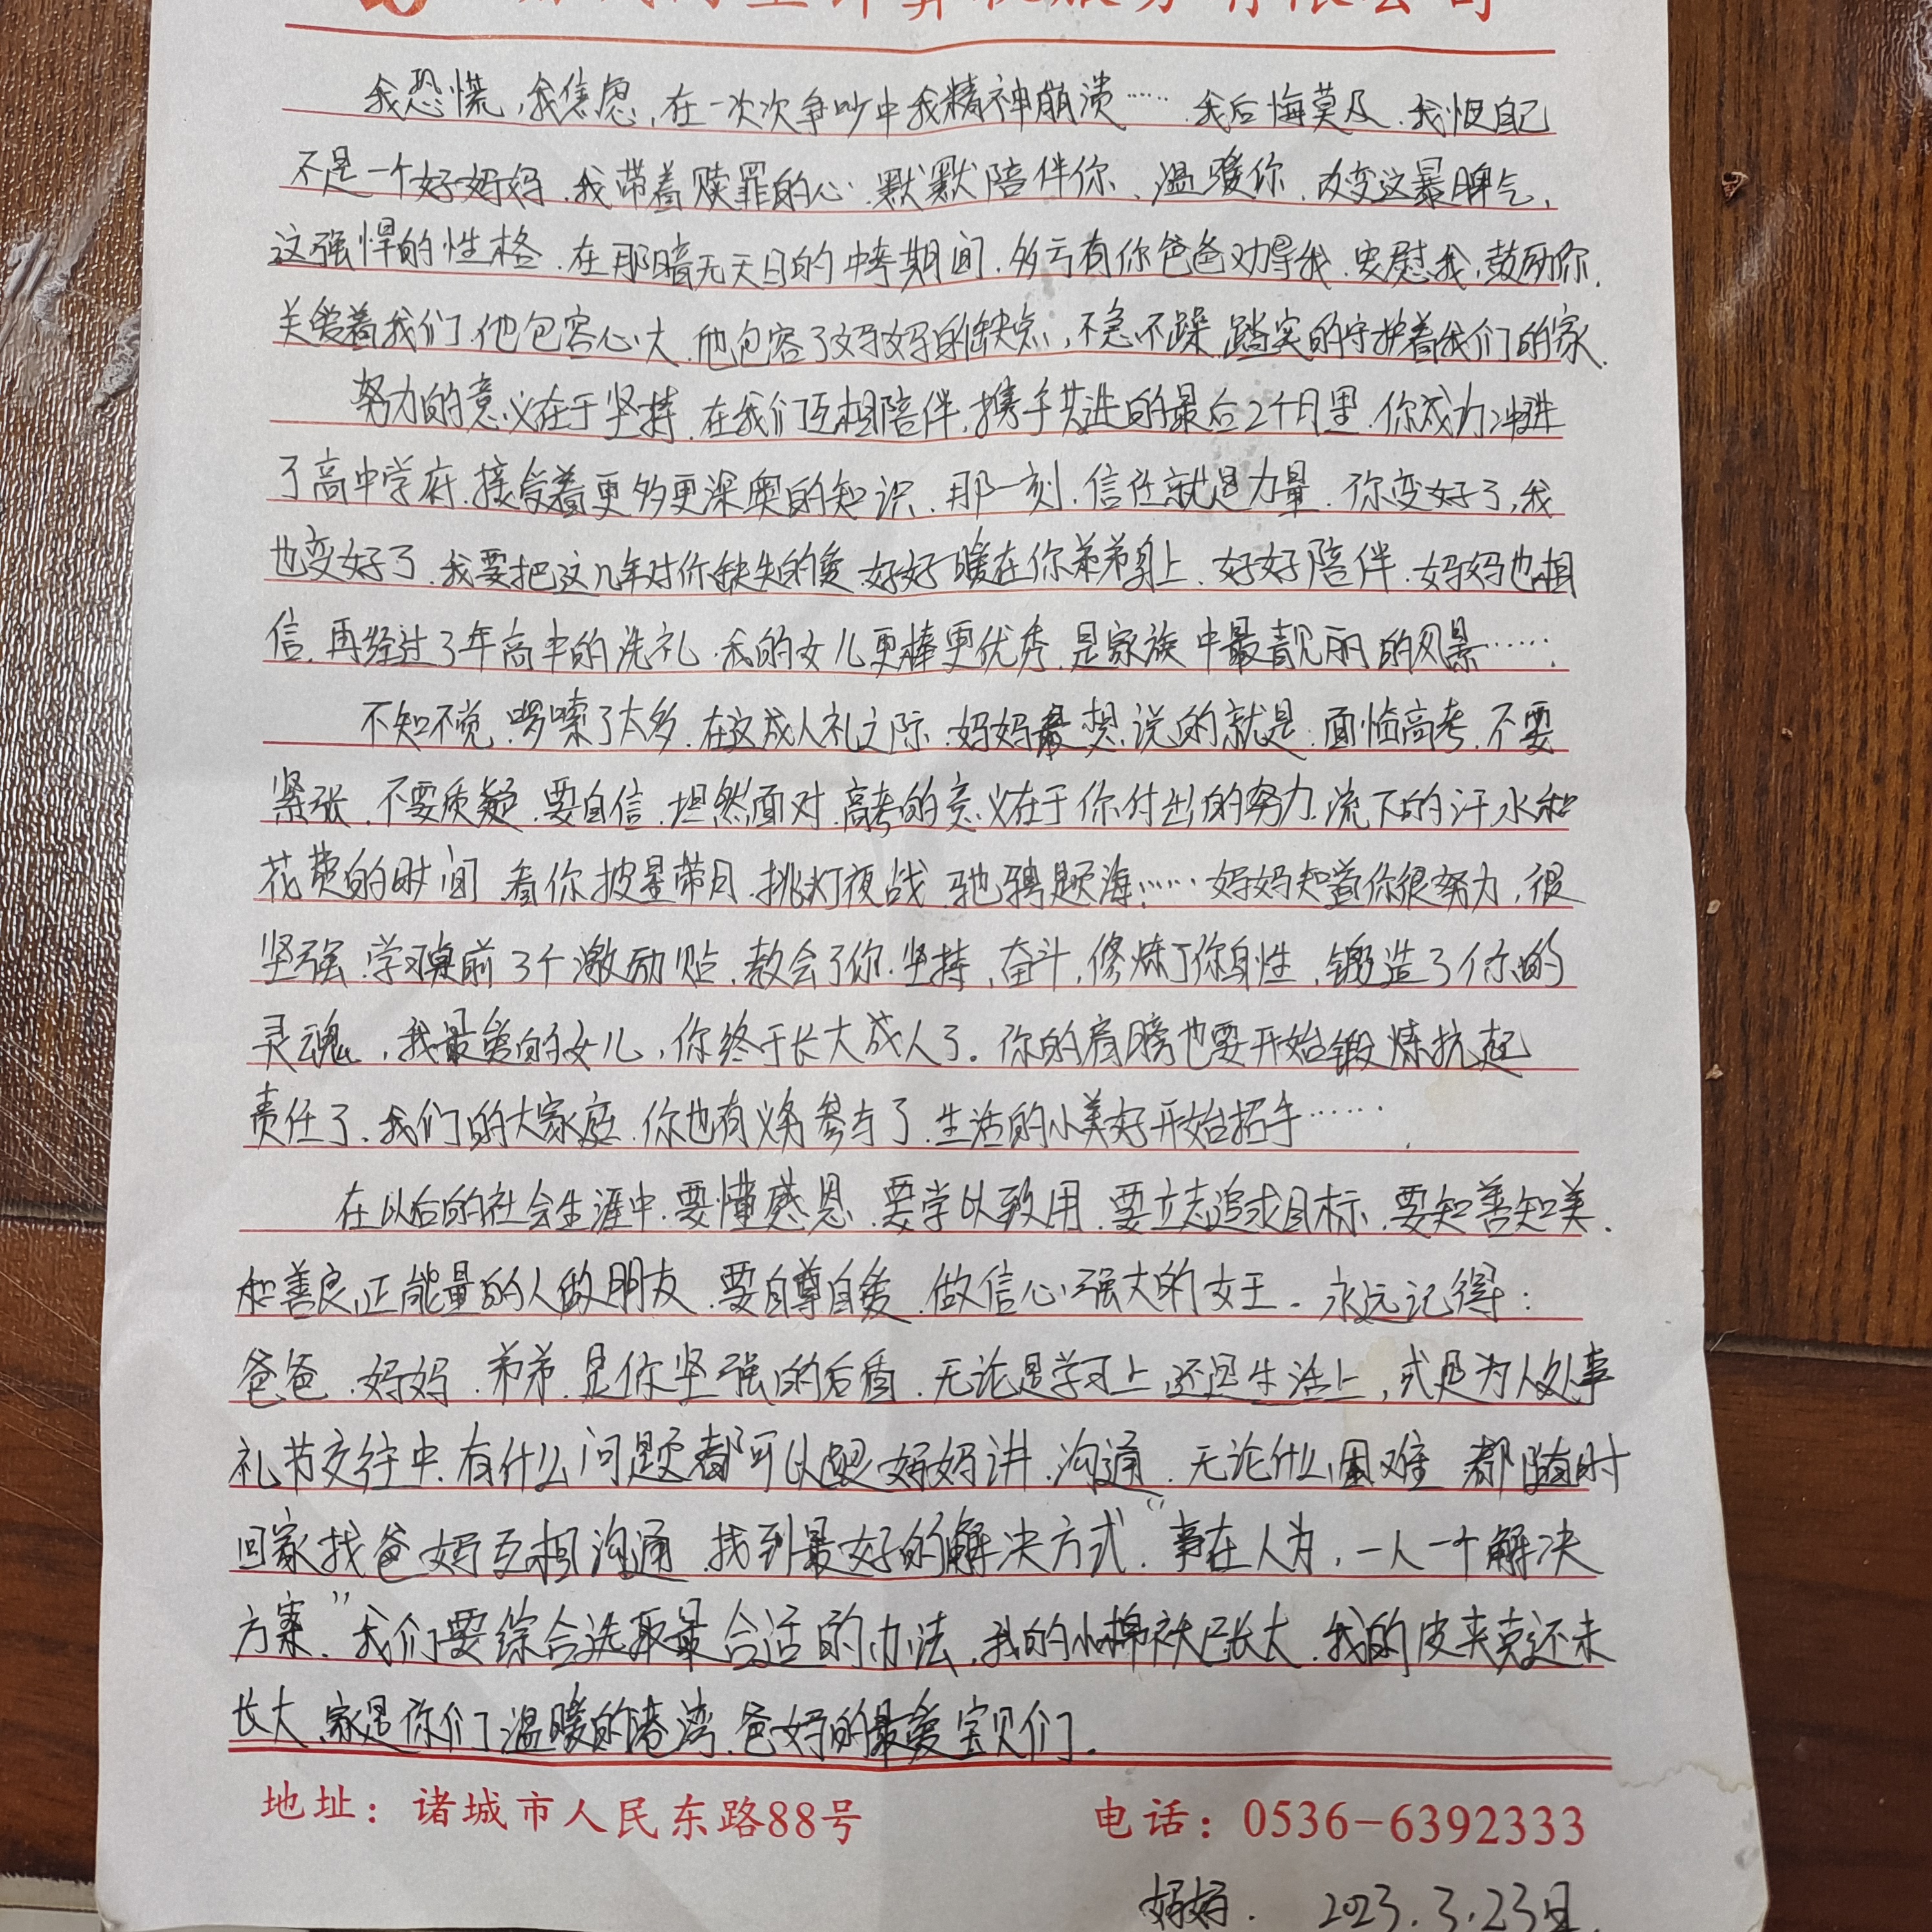 计算机服务有限公司
我恐慌,我焦虑,在一次次争吵中我精神崩溃…….我后悔莫及.我恨自己
不是一个好妈妈.我带着赎罪的心.默默陪伴你、温暖你.改变这暴脾气,
这强悍的性格.在那暗无天日的中考期间.多亏有你爸爸劝导我.安慰我,鼓励你.
关爱着我们.他包容心大.他包容了妈妈的缺点,不急不躁.踏实的守护着我们的家.
努力的意义在于坚持.在我们互相陪伴.携手共进的最后2个月里.你成功冲进
了高中学府.接受着更多更深奥的知识.那一刻.信任就是力量.你变好了,我
也变好了.我要把这几年对你缺失的爱.好好暖在你弟弟身上.好好陪伴.妈妈也相
信.再经过3年高中的洗礼.我的女儿更棒更优秀.是家族中最靓丽的风景…….
不知不觉.啰嗦了太多.在这成人礼之际.妈妈最想说的就是:面临高考.不要
紧张.不要质疑.要自信.坦然面对.高考的意义在于你付出的努力.流下的汗水和
花费的时间.看你披星带月.挑灯夜战.驰骋题海……妈妈知道你很努力,很
坚强.学习桌前3个激励贴.教会了你.坚持,奋斗,修炼了你身性,锻造了你的
灵魂,我最爱的女儿,你终于长大成人了。你的肩膀也要开始锻炼抗起
责任了.我们的大家庭.你也有义务参与了.生活的小美好开始招手…….
在以后的社会生涯中.要懂感恩.要学以致用.要立志追求目标.要知善知美.
和善良正能量的人做朋友.要自尊自爱.做信心强大的女王。永远记得:
爸爸.妈妈.弟弟.是你坚强的后盾.无论是学习上还是生活上,或是为人处事
礼节交往中.有什么问题都可以跟妈妈讲.沟通.无论什么困难都随时
回家找爸妈互相沟通.找到最好的解决方式.“事在人为,一人一个解决
方案.”我们要综合选取最合适的办法.我的小棉袄已长大.我的皮夹克还未
长大.家是你们温暖的港湾.爸妈的最爱宝贝们.
地址:诸城市人民东路88号 电话:0536-6392333
妈妈. 2023.3.23日.